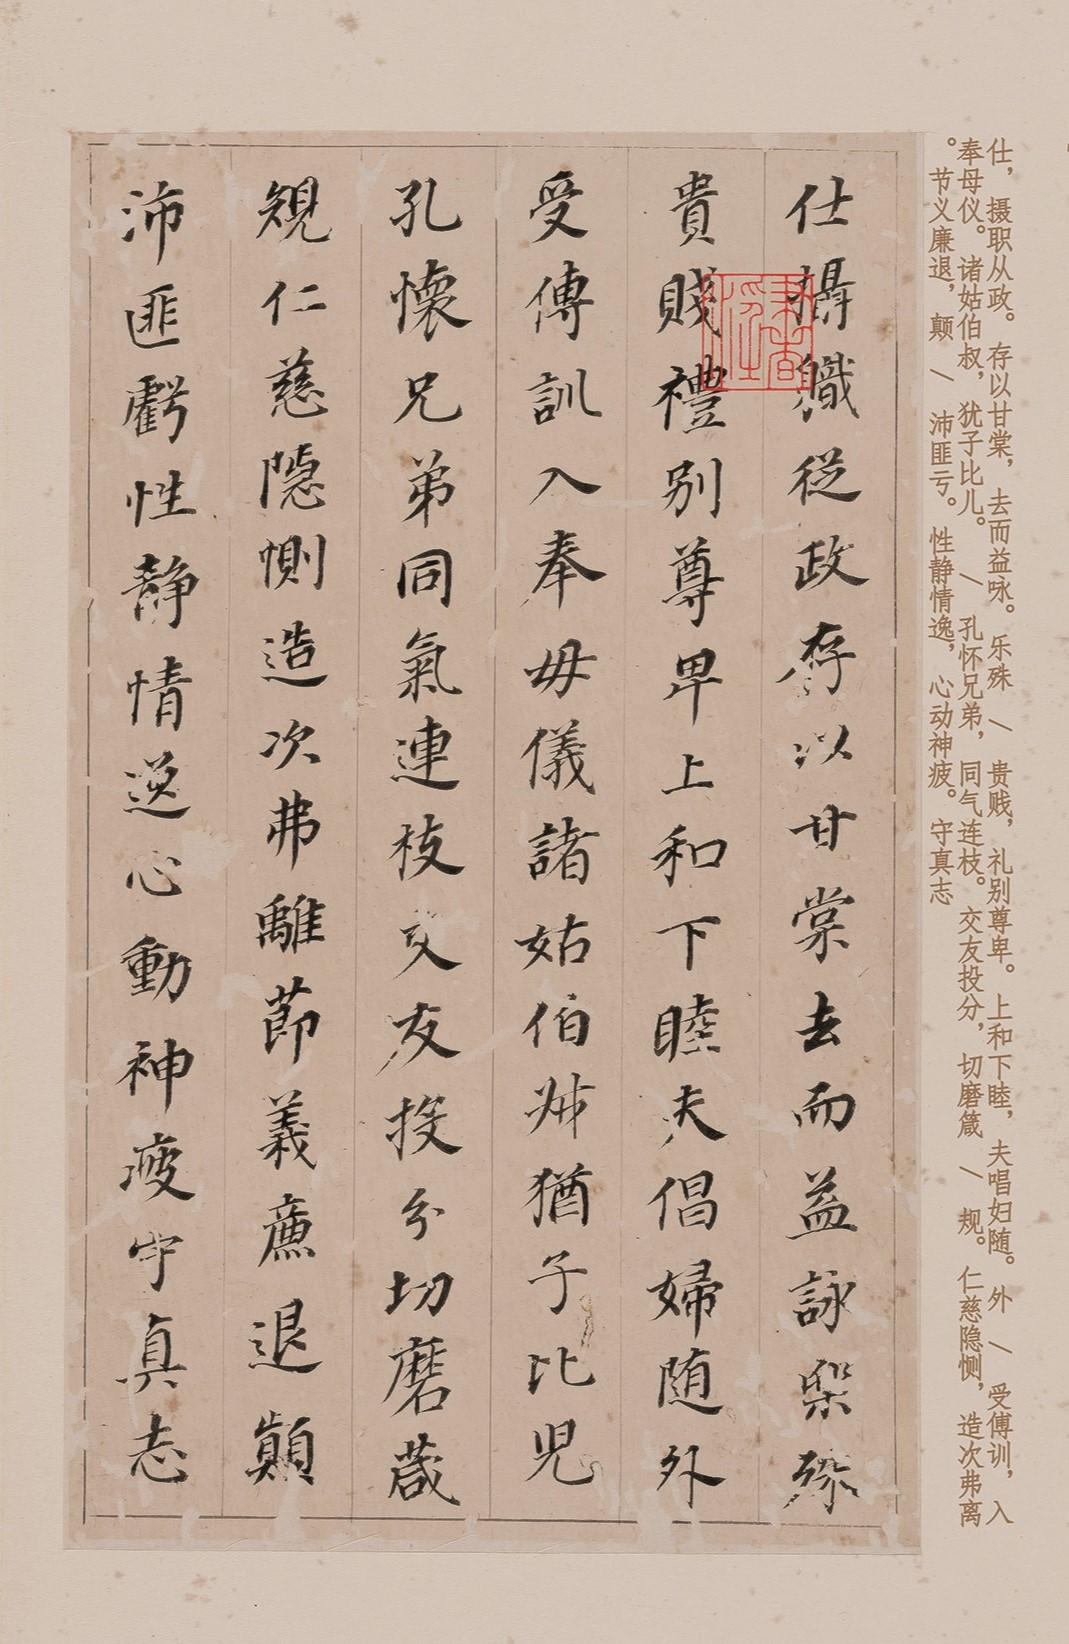 仕攝職從政存以甘棠去而益詠樂殊
貴賤禮別尊卑上和下睦夫倡婦随外
受傅訓入奉母儀諸姑伯叔猶子比兒
孔懷兄弟同氣連枝交友投分切磨葴
規仁慈隱惻造次弗離莭義廉退顛
沛匪虧性靜情逸心動神疲守真志
仕，摄职从政。存以甘棠，去而益咏。乐殊 / 贵贱，礼别尊卑。上和下睦，夫唱妇随。外 / 受傅训，入
奉母仪。诸姑伯叔，犹子比儿。 / 孔怀兄弟，同气连枝。交友投分，切磨箴 / 规。仁慈隐恻，造次弗离
。节义廉退，颠 / 沛匪亏。性静情逸，心动神疲。守真志